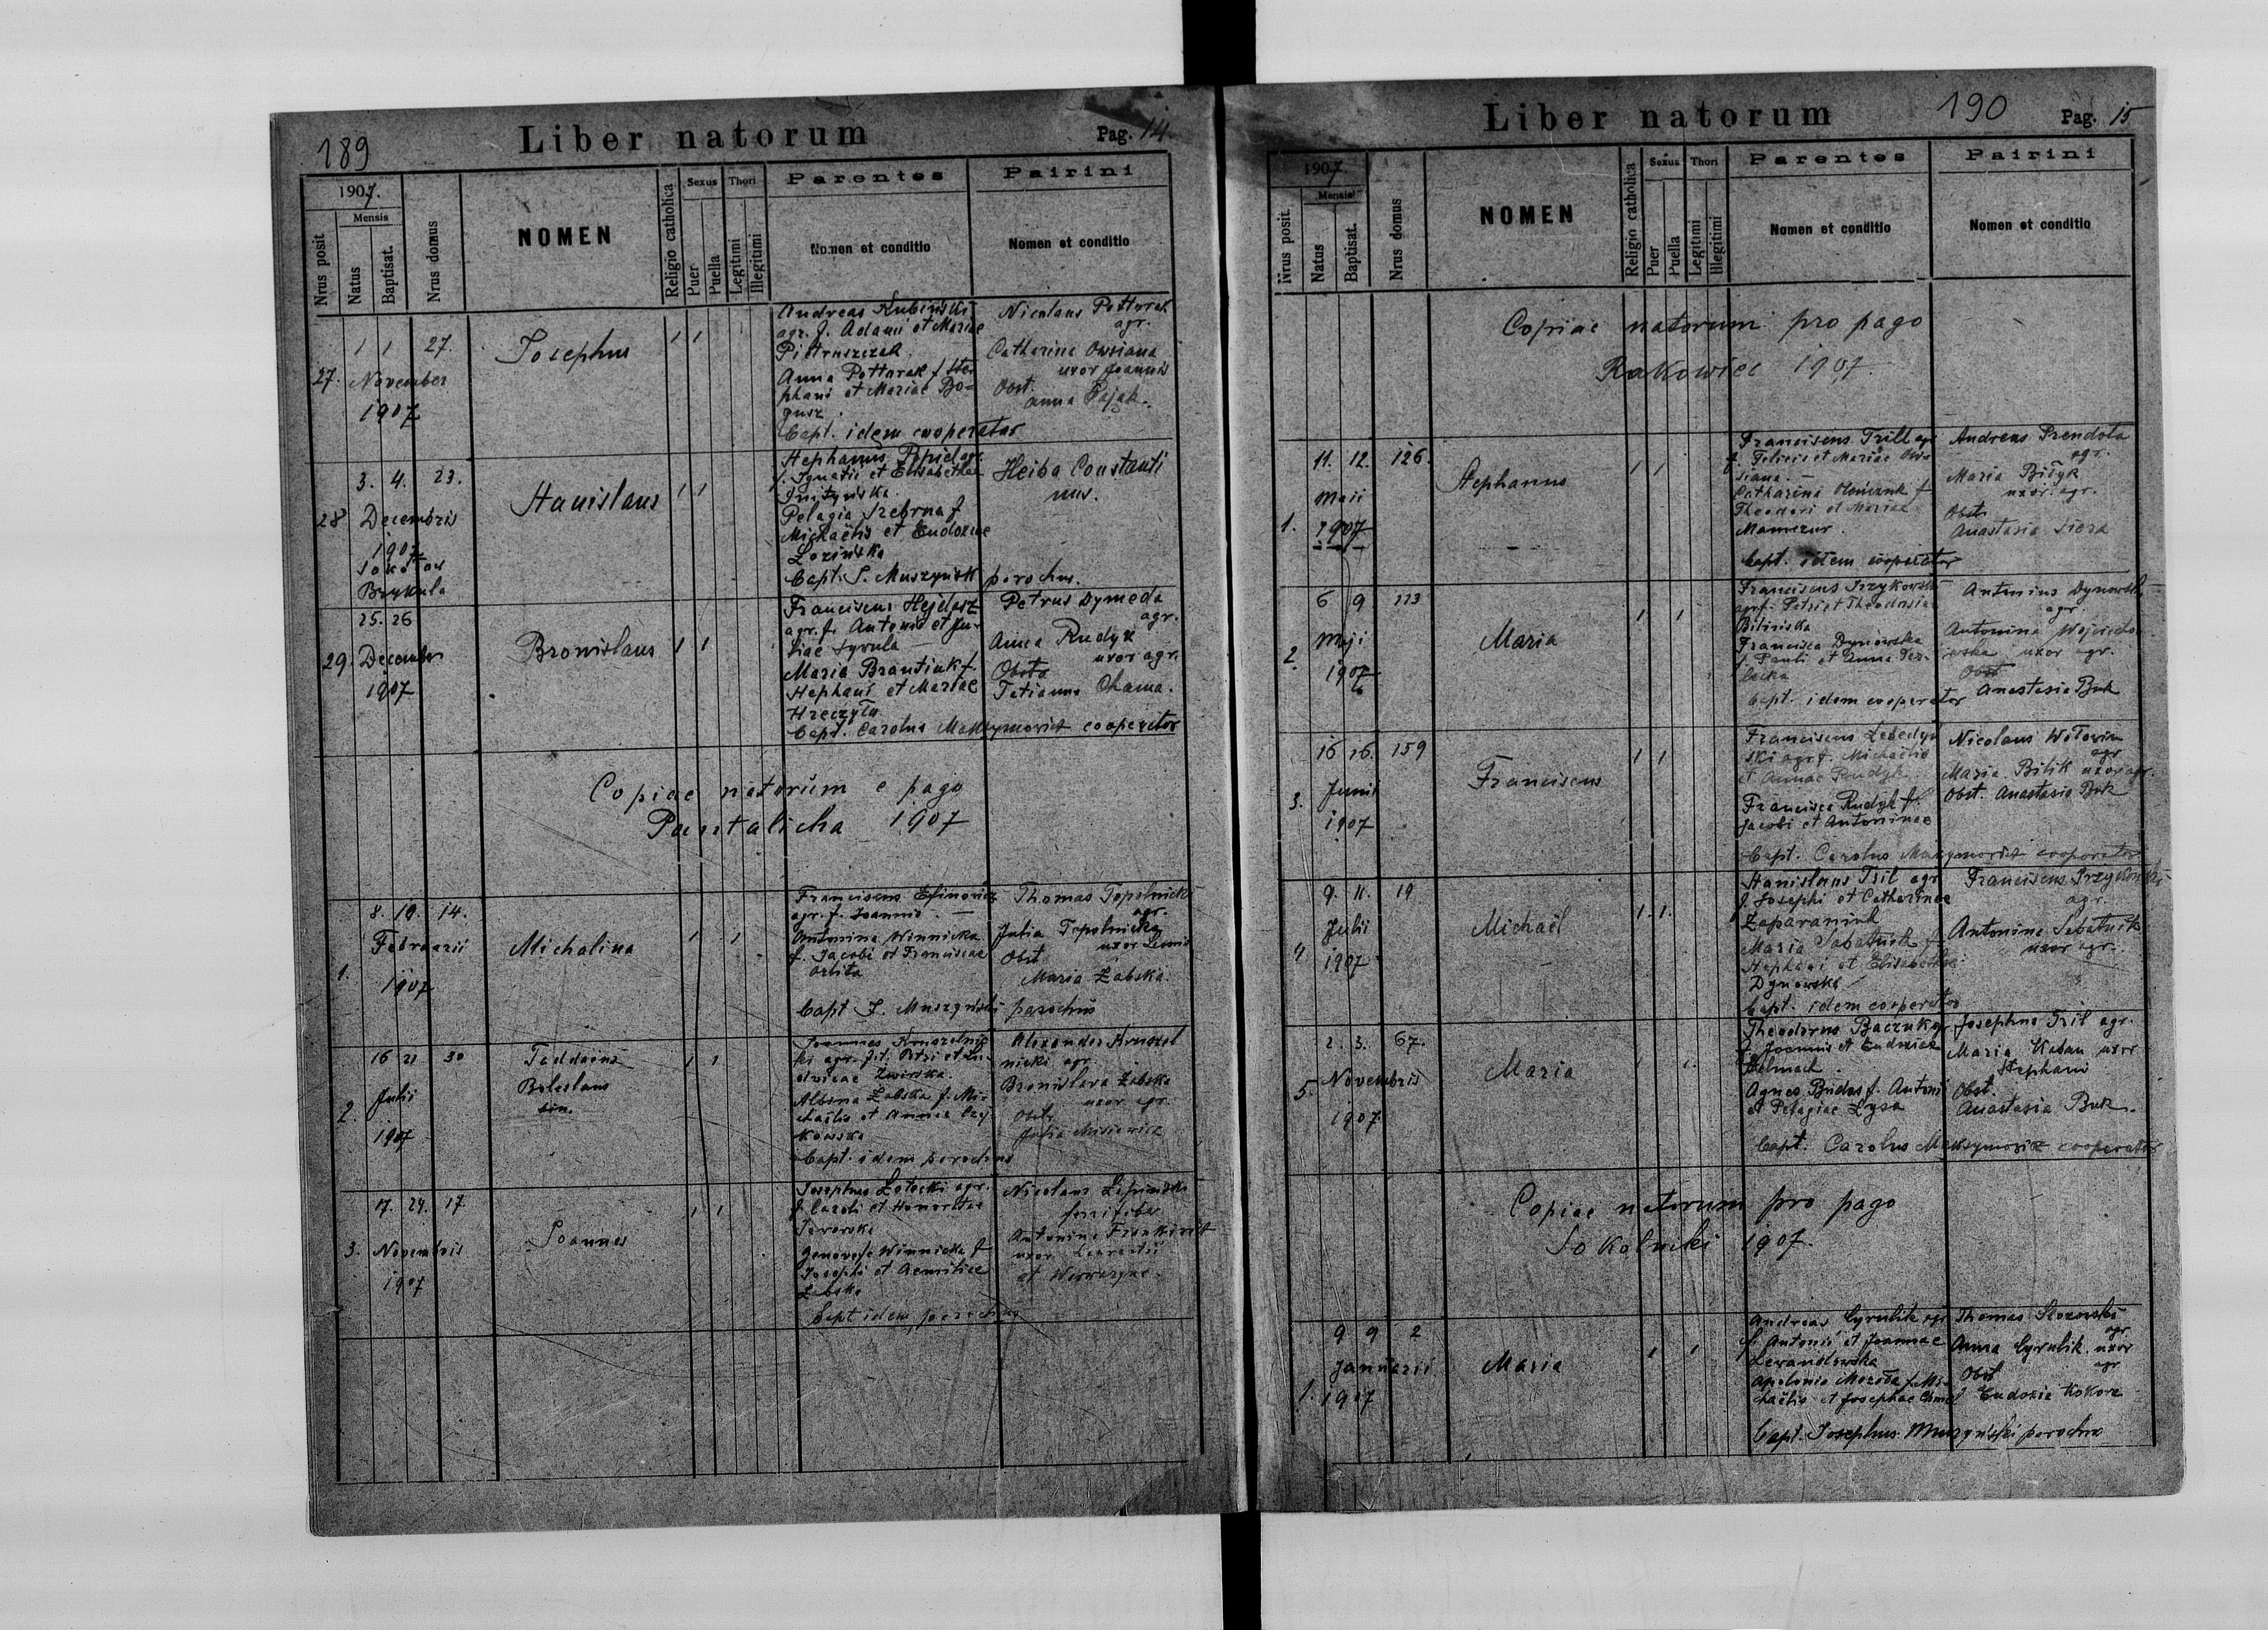 189
Liber natorum
Pag. 14
1907.
Nrus posit.
Mensis
Natus
Baptisat.
Nrus domus
NOMEN
Religio catholica
Sexus
Puer
Puella
Thori
Legitimi
Illegitimi
Parentes
Nomen et conditio
Pairini
Nomen et conditio
27.
1 1 27.
November
1907
Josephus
1 1
Andreas Kubiński
agr. f. Adami et Mariae
Pietruszczak
Anna Pottorak f. Ste
phani et Mariae Bo-
gusz.
Bapt. idem cooperator
Nicolaus Pottorak
agr.
Catharina Owsiana
uxor Joannis
Obst.
Anna Pająk.
28
3. 4. 23.
Decembris
1907
Brykula
Stanislaus
1 1
Stephanus agr.
f. Ignatii et Elisabethae
Pelagia Srebrna f.
Michaëlis et Eudoxiae
Lozińska
Bapt. S. Muszyński parochus.
Heiba Constanti
nus.
29.
25. 26
December
1907
Bronislaus
1 1
Franciscus Hejdasz
agr. f. Antonii et Ju-
liae Syrula
Maria Brantiuk f.
Stephani et Mariae
Hreczyła
Bapt. Carolus Maksymowicz cooperator
Petrus Dymeda
agr.
Anna Rudyk
uxor agr.
Obsta
Tatianna Chama.
Copiae natorum e pago
Pantalicha 1907
1.
8. 19. 14.
Februarii
1907
Michalina
1 1
Franciscus Efinowicz
agr. f. Joannis. —
Antonina Winnicka
f. Jacobi et Franciscae
Orlita
Bapt J. Muszyński parochus
Thomas Topolnicki
agr.
Julia Topolnicka
uxor
Obst
Maria Żabska.
2.
16 21 30
Julii
1907
Taddaeus
Boleslaus
bin.
1 1
Joannes Kruszelnic
ki agr. f. Petri et Lu-
dvicae Zwirska.
Albina Żabska f. Mi-
chaëlis et Annae Czy
kowska
Bapt. idem parochus
Alexander Kruszel
nicki agr.
Bronislava Żabska
uxor agr.
Obst.
Julia Misiewicz
3.
17. 24. 17
Novembris
1907
Joannes
1 1
Josephus Zotocki agr.
f. Caroli et Honoratae
Jaworska
Genovefa Winnicka f
Josephi et Aemiliae
Żabska
Bapt idem parochus
Nicolaus Lipiński
ferrifaber
Antonina
uxor Laurentii
Liber natorum
190
Pag. 15
1907.
Nrus posit.
Mensis
Natus
Baptisat.
Nrus domus
NOMEN
Religio catholica
Sexus
Puer
Puella
Thori
Legitimi
Illegitimi
Parentes
Nomen et conditio
Pairini
Nomen et conditio
Copiae natorum pro pago
Rakowiec 1907.
1.
11. 12. 126.
Maii
1907
Stephanus
1 1
Franciscus Trill agr
f. Felicis et Mariae Ows
iana. —
Catharina f
Theodori et Mariae
Mamczur.
Bapt. idem cooperator
Andreas Prendota
agr.
Maria Biłyk
uxor agr.
Obst.
Anastasia Siora
2.
6 9 113
Maji
1907
Maria
1 1
Franciscus Przykowski
agr. f. Petri et Theodosiae
Bilińska
Francisca Dynowska
f. Pauli et Anna
Bapt. idem cooperator
Antonius Dynowski
agr.
Antonina Wojciecho
wska uxor agr.
Obst
Anastasia Buk
3.
16 16. 159
Junii
1907
Franciscus
1 1
Franciscus Lebedyn
ski agr. f. Michaëlis
et Annae Rudyk.
Francisca Rudyk f.
Jacobi et Antoninae
Bapt. Carolus Maksymowicz cooperator
Nicolaus Wołowin
agr
Maria Bilik uxor agr.
Obst. Anastasia Buk
4
9. 11. 19
Julii
1907
Michaël
1. 1.
Stanislaus Tril agr
f. Josephi et Catharinae
Zaparaniuk
Maria Sabatnik f
Stephani et Elisabethae
Dynowska
Bapt. idem cooperator
Franciscus Przykowski
agr.
Antonina Sabatnik
uxor agr.
5.
2. 3. 67.
Novembris
1907.
Maria
1 1.
Theodorus Baczuk agr
f. Joannis et Eudoxiae
Helmach.
Agnes Budas f. Antoni
et Pelagiae Lysa
Bapt. Carolus Maksymowicz cooperator
Josephus Tril agr.
Maria Kaban uxor
Stephani
Obst.
Anastasia Buk.
Copiae natorum pro pago
Sokolniki 1907.
1.
9 9 2
Januarii
1907
Maria
1 1
Andreas Cyrulik agr
f. Antonii et Joannae
Lewandowska
Apolonia Mozoła f. Mi-
chaëlis et Josephae
Bapt. Josephus Muszyński parochus
Thomas
agr
Anna Cyrulik uxor
agr
Obst
Eudoxia Kokora